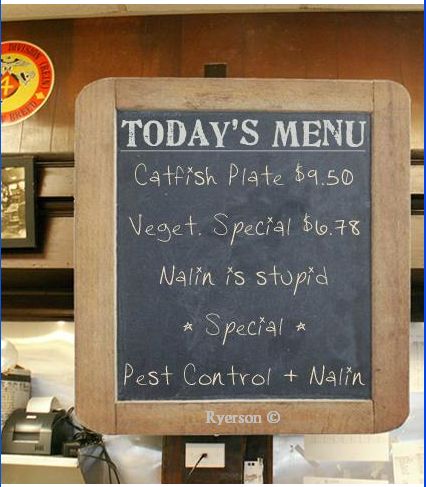 DIVISION (REIN)
4
BREED
TODAY'S MENU
Catfish Plate $9.50
Veget. Special $6.78
Nalin is stupid
* Special *
Pest Control + Nalin
Ryerson ©